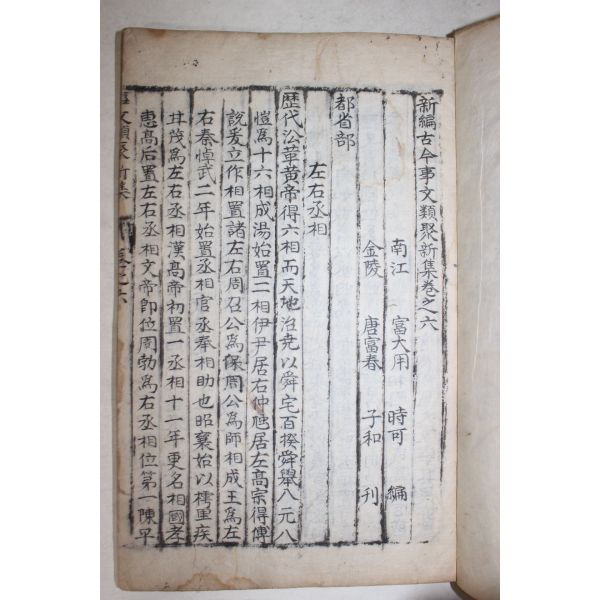 新編古今事文類聚新集卷之六
南江 富大用 時可 編
金陵 唐富春 子和 刊
都省部
左右丞相
歷代沿革黃帝得六相而天地治堯以舜宅百揆舜舉八元八
愷爲十六相成湯始置二相伊尹居右仲虺居左高宗得傅
說爰立作相置諸左右周召公爲保周公爲師相成王爲左
右秦悼武二年始置丞相官丞奉相助也昭襄始以樗里疾
甘茂爲左右丞相漢高帝初置一丞相十一年更名相國孝
惠高后置左右丞相文帝卽位周勃爲右丞相位第一陳平
事文類聚新集 卷之六